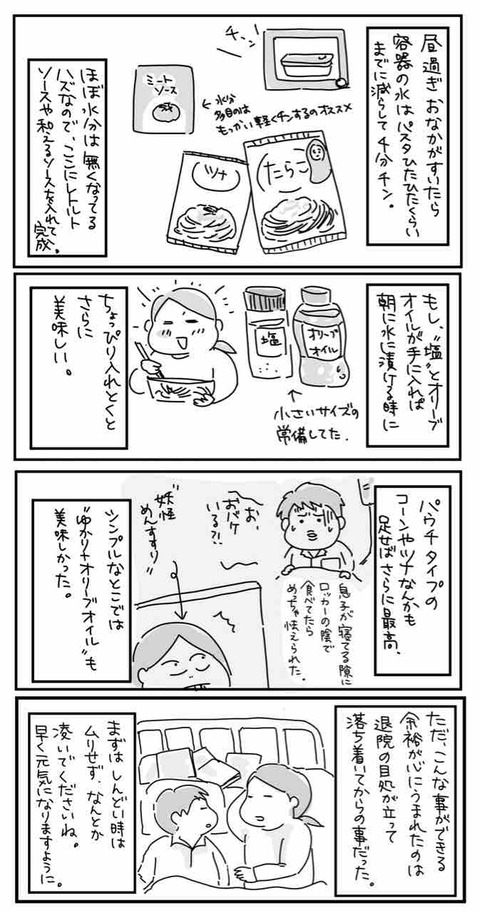 昼過ぎ おなかがすいたら
容器の水はパスタひたひたくらい
までに減らして4分チン。
チーン
ミート
ソース
←水分
多目のは
もっかい軽くチンするのオススメ
ツナ
たらこ
ほぼ水分は無くなってる
ハズなので、ここにレトルト
ソースや和えるソースを入れて
完成。
もし、"塩"とオリーブ
オイルが手に入れば
朝に水に漬ける時に
オリーブ
オイル
塩
↑
小さいサイズの
常備してた.
ちょっぴり入れとくと
さらに
美味しい。
パウチタイプの
コーンやツナなんかも
足せばさらに最高、
息子が寝てる隙に
ロッカーの陰で
食べてたら
めっちゃ怯えられた。
お、
おバケ
いる?!
"妖怪
めんすすり"
シンプルなとこでは
"ゆかり+オリーブオイル"も
美味しかった。
ただ、こんな事ができる
余裕が心にうまれたのは
退院の目処が立って
落ち着いてからの事だった。
まずはしんどい時は
ムリせず、なんとか
凌いでくださいね。
早く元気になりますように。